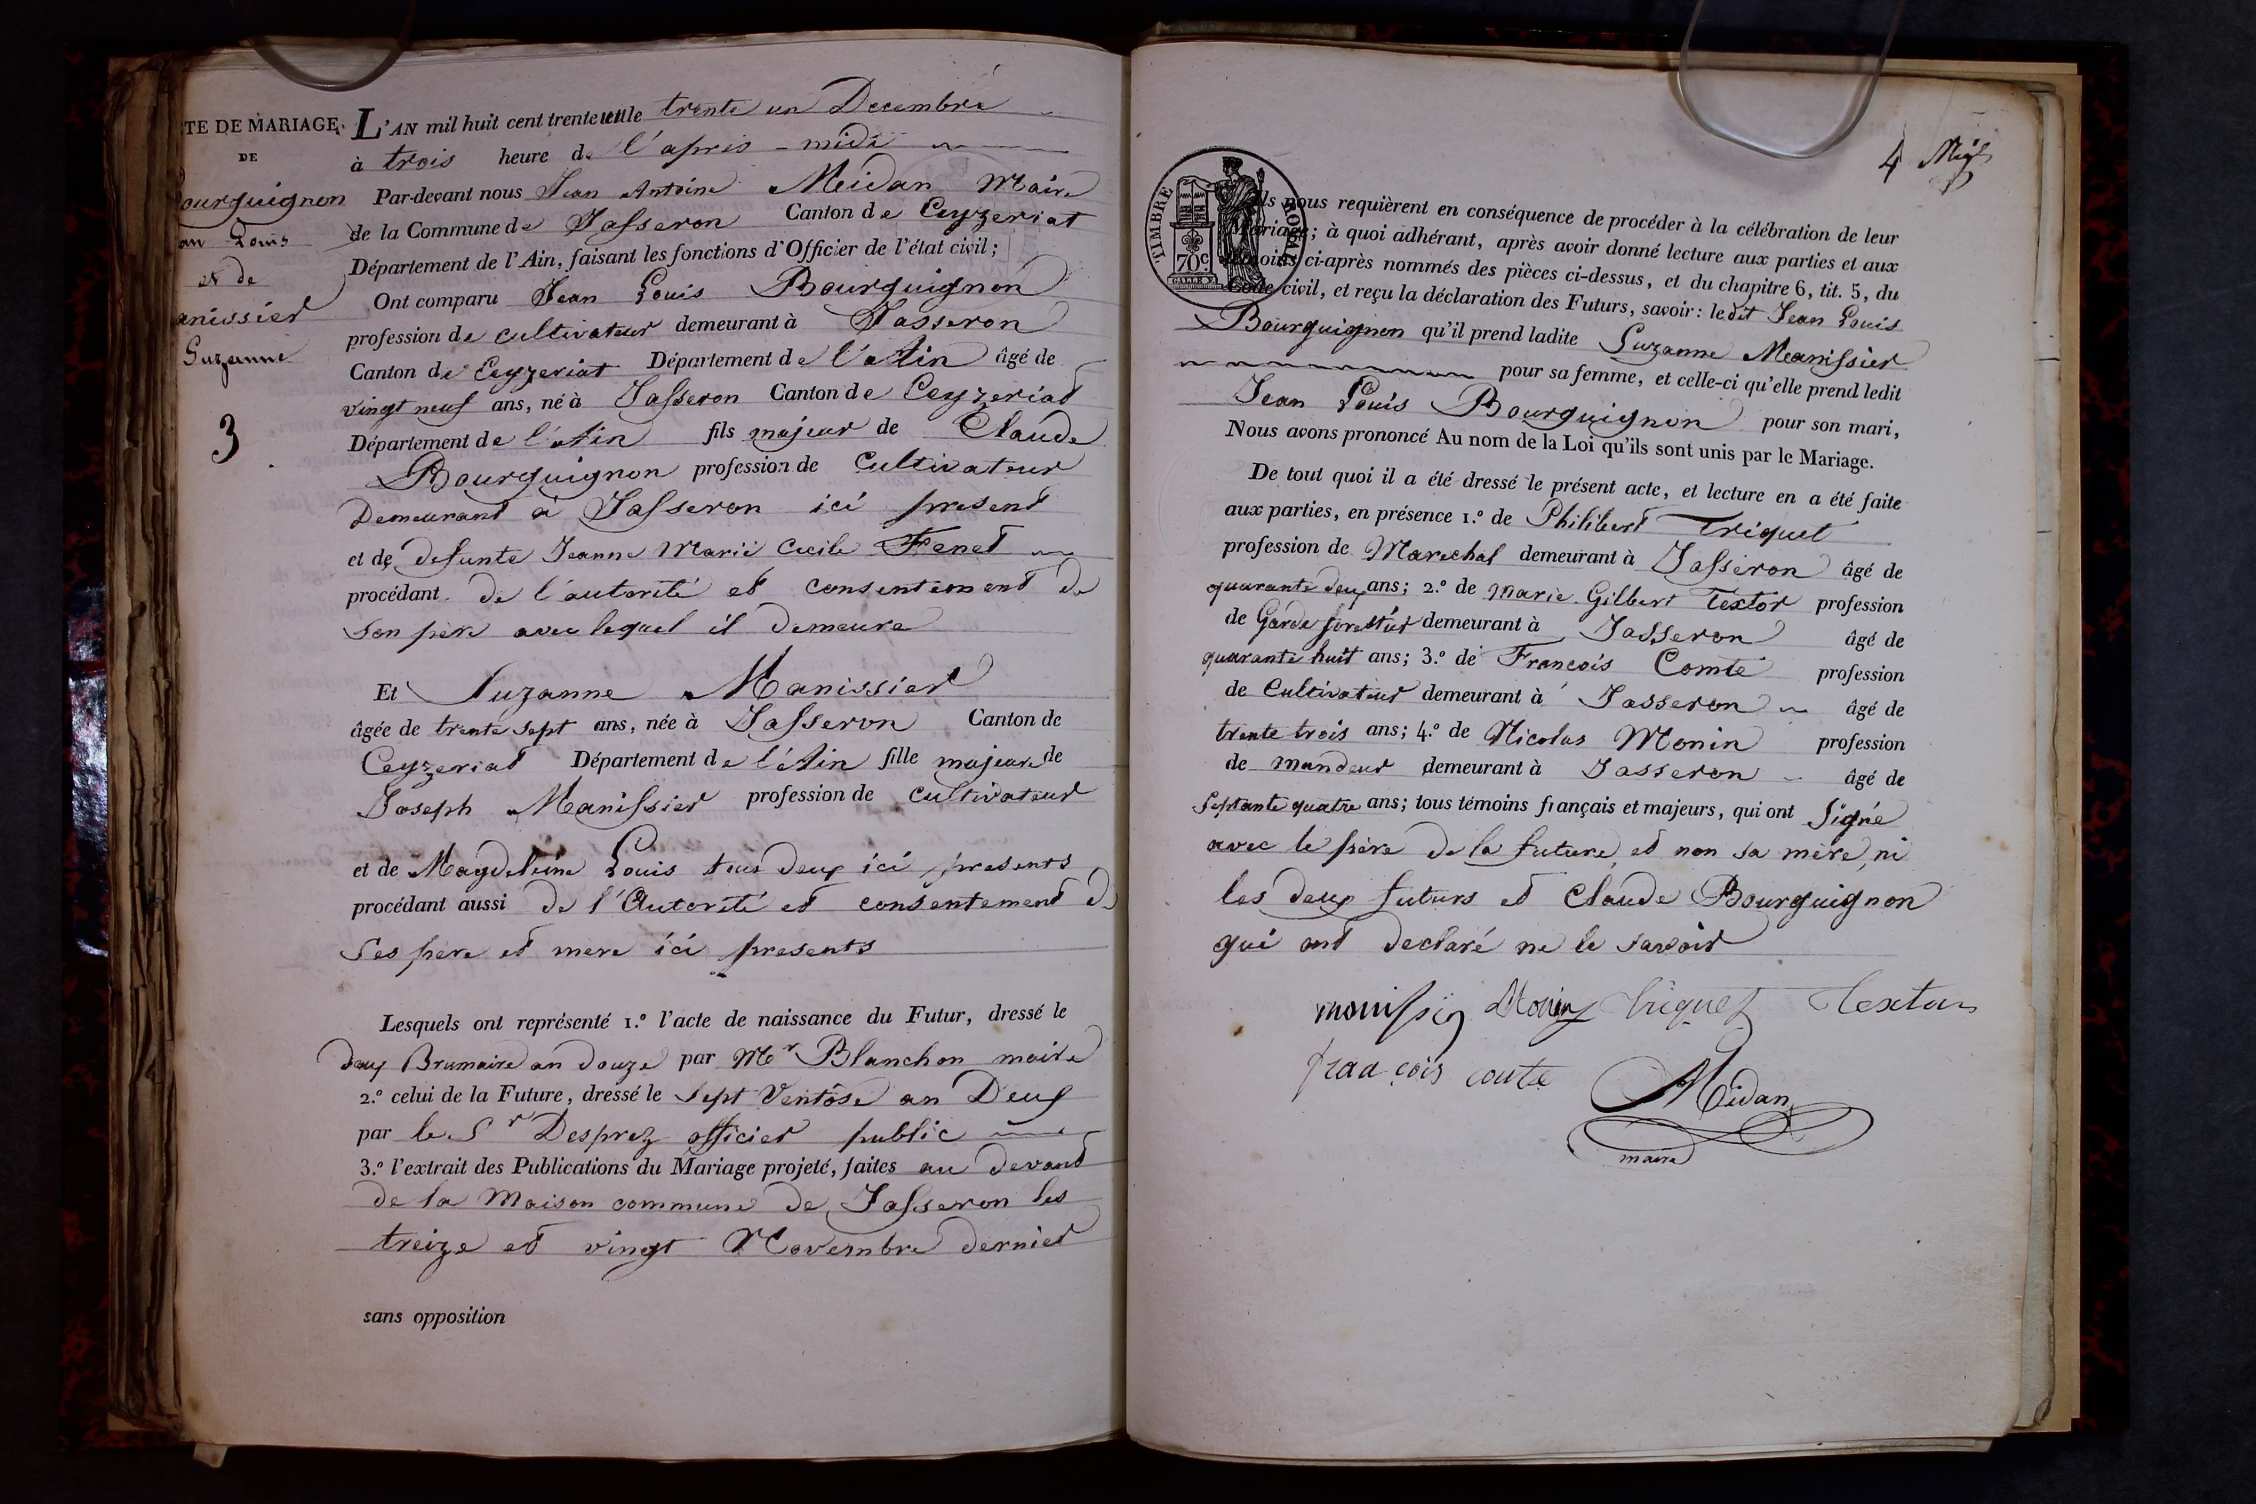 TE DE MARIAGE.
DE
ourguignon
an Louis
et de
anissier
Suzanne
3
L'AN mil huit cent trente le trente un Decembre
à trois heure de l'apris - midi
Par-devant nous Jean Antoine Meidan Maire
de la Commune de Jasseron Canton de Ceyzeriat
Département de l'Ain, faisant les fonctions d'Officier de l'état civil;
Ont comparu Jean Louis Bourguignon
profession de cultivateur demeurant à Jasseron
Canton de Ceyzeriat Département de l'Ain âgé de
vingt neuf ans, né à Jasseron Canton de Ceyzeriat
Département de l'Ain fils majeur de Claude
Bourguignon profession de Cultivateur
Demeurant a Jasseron ici present
et de defunte Jeanne Marie Cecile Fenet
procédant de l'autorité et consentement de
son père avec lequel il demeure
Et Suzanne Manissier
âgée de trente sept ans, née à Jasseron Canton de
Ceyzeriat Département de l'Ain fille majeure de
Joseph Manissier profession de cultivateur
et de Magdeleine Louis tous deux ici presents
procédant aussi de l'Autorité et consentement de
Ses père et mere ici presents
Lesquels ont représenté 1.º l'acte de naissance du Futur, dressé le
deux Brumaire an douze par Mr Blanchon maire
2.º celui de la Future, dressé le sept Ventôse an Deux
par le Sr Desprez officier public
3.º l'extrait des Publications du Mariage projeté, faites au devant
de la Maison commune de Jasseron les
treize et vingt Novembre dernier
sans opposition
4
TIMBRE ROYAL
70c
Ils nous requièrent en conséquence de procéder à la célébration de leur
Mariage; à quoi adhérant, après avoir donné lecture aux parties et aux
témoins ci-après nommés des pièces ci-dessus, et du chapitre 6, tit. 5, du
Code civil, et reçu la déclaration des Futurs, savoir: le dit Jean Louis
Bourguignon qu'il prend ladite Suzanne Manissier
pour sa femme, et celle-ci qu'elle prend ledit
Jean Louis Bourguignon pour son mari,
Nous avons prononcé Au nom de la Loi qu'ils sont unis par le Mariage.
De tout quoi il a été dressé le présent acte, et lecture en a été faite
aux parties, en présence 1.º de Philibert Triquet
profession de Marechal demeurant à Jasseron âgé de
quarante deux ans; 2.º de Marie Gilbert Textor profession
de Garde forestier demeurant à Jasseron âgé de
quarante huit ans; 3.º de Francois Comte profession
de Cultivateur demeurant à Jasseron âgé de
trente trois ans; 4.º de Nicolas Monin profession
de mandeur demeurant à Jasseron âgé de
Septante quatre ans; tous témoins français et majeurs, qui ont Signé
avec le père de la future, et non sa mère, ni
les deux futurs et Claude Bourguignon
qui ont declaré ne le savoir
manissier Monin triquet Textor
francois conte Meidan
maire